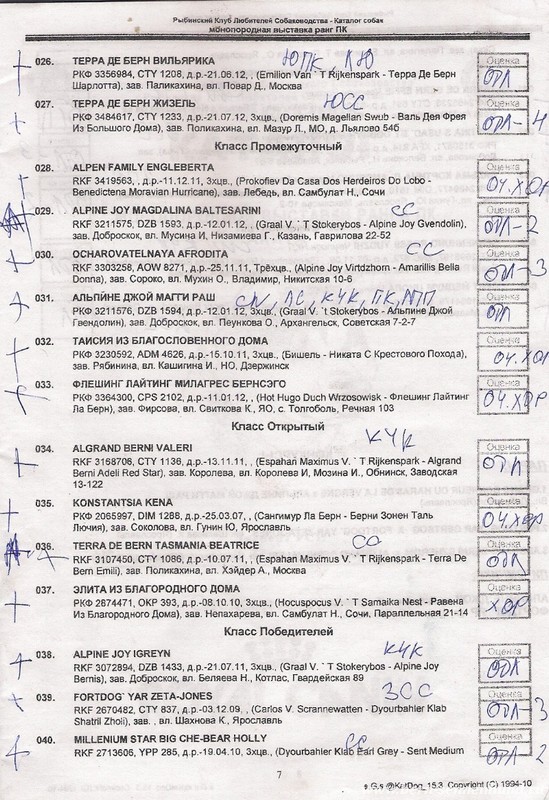 Рыбинский Клуб Любителей Собаководства - Каталог собак
монопородная выставка ранг ПК
026. ТЕРРА ДЕ БЕРН ВИЛЬЯРИКА ЮПК, ЛЮ Оценка
РКФ 3356984, CTY 1208, д.р.-21.06.12, , (Emilion Van ` T Rijkenspark - Терра Де Берн ОТЛ
Шарлотта), зав. Паликахина, вл. Повар Д., Москва
027. ТЕРРА ДЕ БЕРН ЖИЗЕЛЬ ЮСС Оценка
РКФ 3484617, CTY 1233, д.р.-21.07.12, 3хцв., (Doremis Magelian Swub - Валь Дея Фрея ОТЛ-4
Из Большого Дома), зав. Поликахина, вл. Мазур Л., МО, д. Льялово 54б
Класс Промежуточный
028. ALPEN FAMILY ENGLEBERTA Оценка
RKF 3419563, , д.р.-11.12.11, 3хцв., (Prokofiev Da Casa Dos Herdeiros Do Lobo - ОЧ.ХОР
Benedictena Moravian Hurricane), зав. Лебедь, вл. Самбулат Н., Сочи
029. ALPINE JOY MAGDALINA BALTESARINI СС Оценка
RKF 3211575, DZB 1593, д.р.-12.01.12, , (Graal V. ` T Stokerybos - Alpine Joy Gvendolin), ОТЛ-2
зав. Доброскок, вл. Мусина И, Низамиева Г., Казань, Гаврилова 22-52
030. OCHAROVATELNAYA AFRODITA СС Оценка
RKF 3303258, AOW 8271, д.р.-25.11.11, Трёхцв., (Alpine Joy Virtdzhorn - Amarillis Bella ОТЛ-3
Donna), зав. Сороко, вл. Мухин О., Владимир, Никитская 10-6
031. АЛЬПИНЕ ДЖОЙ МАГГИ РАШ CW, ЛС, КЧК, ПК, ЛПП Оценка
РКФ 3211576, DZB 1594, д.р.-12.01.12, 3хцв., (Graal V. `t Stokerybos - Альпине Джой ОТЛ
Гвендолин), зав. Доброскок, вл. Пеункова О., Архангельск, Советская 7-2-7
032. ТАИСИЯ ИЗ БЛАГОСЛОВЕННОГО ДОМА Оценка
РКФ 3230592, ADM 4626, д.р.-15.10.11, 3хцв., (Бишель - Никата С Крестового Похода), ОЧ.ХОР
зав. Рябинина, вл. Кашигина И., НО, Дзержинск
033. ФЛЕШИНГ ЛАЙТИНГ МИЛАГРЕС БЕРНСЭГО Оценка
РКФ 3364300, CPS 2102, д.р.-11.01.12, , (Hot Hugo Duch Wrzosowisk - Флешинг Лайтинг ОЧ.ХОР
Ла Берн), зав. Фирсова, вл. Свиткова К., ЯО, с. Толгоболь, Речная 103
Класс Открытый
034. ALGRAND BERNI VALERI КЧК Оценка
RKF 3168706, CTY 1136, д.р.-13.11.11, , (Espahan Maximus V. ` T Rijkenspark - Algrand ОТЛ
Berni Adeli Red Star), зав. Королева, вл. Королева И, Мозина И., Обнинск, Заводская
13-122
035. KONSTANTSIA KENA Оценка
РКФ 2065997, DIM 1288, д.р.-25.03.07, , (Сангимур Ла Берн - Берни Зонен Таль ОЧ.ХОР
Лючия), зав. Соколова, вл. Гунин Ю, Ярославль
036. TERRA DE BERN TASMANIA BEATRICE СС Оценка
RKF 3107450, CTY 1086, д.р.-10.07.11, , (Espahan Maximus V. ` T Rijkenspark - Terra De ОТЛ
Bern Emili), зав. Поликахина, вл. Хэйдер А., Москва
037. ЭЛИТА ИЗ БЛАГОРОДНОГО ДОМА Оценка
РКФ 2874471, ОКР 393, д.р.-08.10.10, 3хцв., (Hocuspocus V. ` T Samaika Nest - Равена ХОР
Из Благородного Дома), зав. Непахарева, вл. Самбулат Н., Сочи, Параллельная 21-14
Класс Победителей
038. ALPINE JOY IGREYN КЧК Оценка
RKF 3072894, DZB 1433, д.р.-21.07.11, 3хцв., (Graal V. ` T Stokerybos - Alpine Joy ОТЛ
Bernis), зав. Доброскок, вл. Беляева Н., Котлас, Гвардейская 89
039. FORTDOG` YAR ZETA-JONES 3СС Оценка
RKF 2670482, CTY 837, д.р.-03.12.09, , (Carlos V. Scrannewatten - Dyourbahler Klab ОТЛ-3
Shatril Zholi), зав. , вл. Шахнова К., Ярославль
040. MILLENIUM STAR BIG CHE-BEAR HOLLY СС Оценка
RKF 2713606, YPP 285, д.р.-19.04.10, 3хцв., (Dyourbahler Klab Earl Grey - Sent Medium ОТЛ-2
7
@KatDog_15.3 Copyright (C) 1994-10